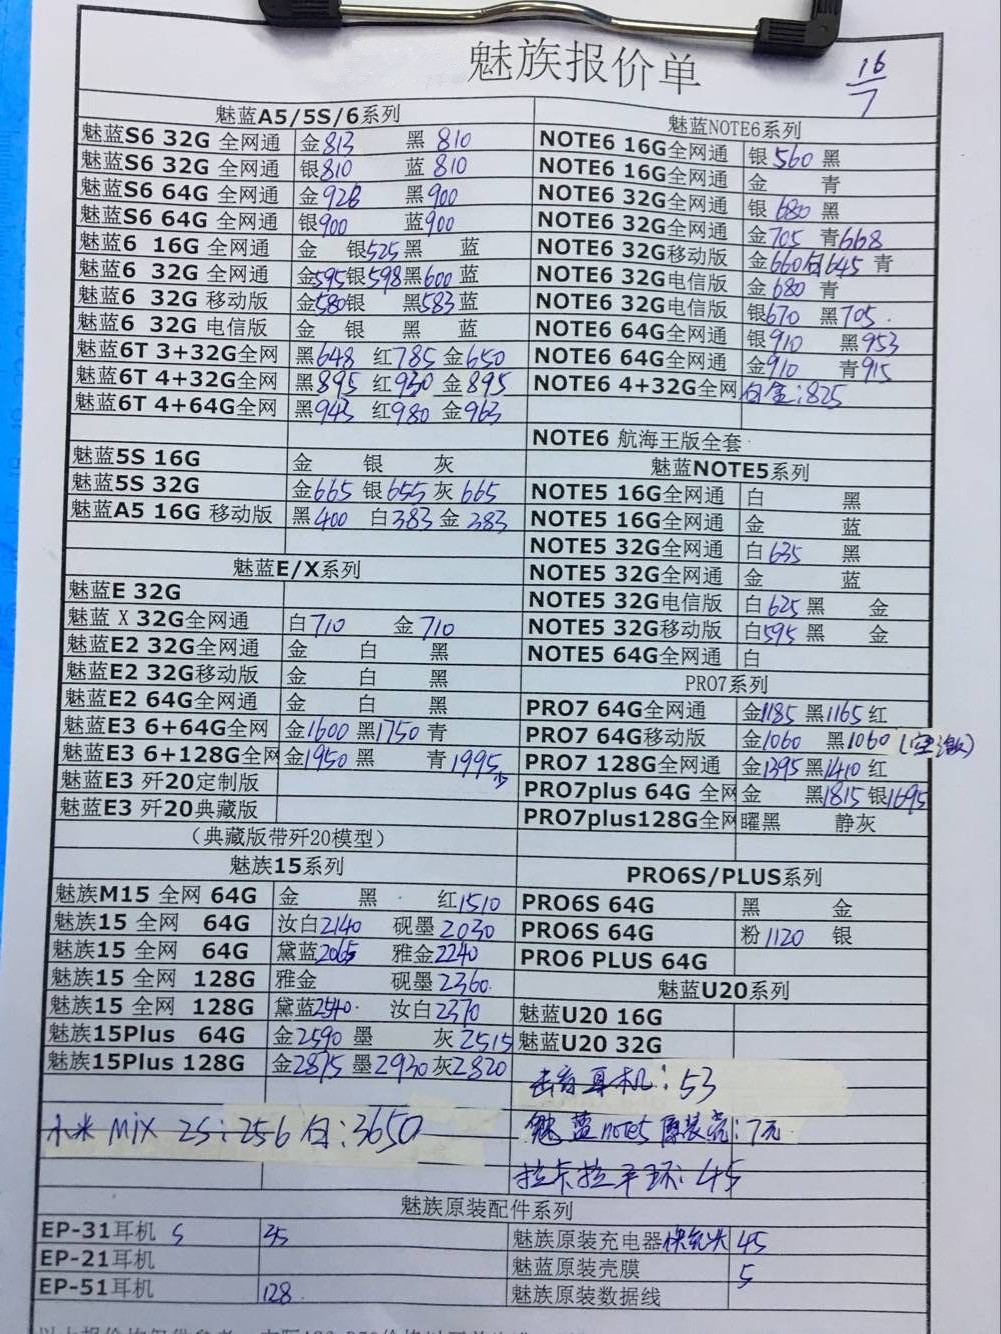 魅族报价单
16/7
魅蓝A5/5S/6系列
魅蓝S6 32G 全网通 金813 黑810
魅蓝S6 32G 全网通 银810 蓝810
魅蓝S6 64G 全网通 金928 黑900
魅蓝S6 64G 全网通 银900 蓝900
魅蓝6 16G 全网通 金 银525 黑 蓝
魅蓝6 32G 全网通 金595 银598 黑600 蓝
魅蓝6 32G 移动版 金580 银 黑583 蓝
魅蓝6 32G 电信版 金 银 黑 蓝
魅蓝6T 3+32G全网 黑648 红785 金650
魅蓝6T 4+32G全网 黑895 红930 金895
魅蓝6T 4+64G全网 黑943 红980 金963
魅蓝5S 16G 金 银 灰
魅蓝5S 32G 金665 银655 灰665
魅蓝A5 16G 移动版 黑400 白383 金383
魅蓝E/X系列
魅蓝E 32G
魅蓝 X 32G全网通 白710 金710
魅蓝E2 32G全网通 金 白 黑
魅蓝E2 32G移动版 金 白 黑
魅蓝E2 64G全网通 金 白 黑
魅蓝E3 6+64G全网 金1600 黑1750 青
魅蓝E3 6+128G全网 金1950 黑 青1995
魅蓝E3 歼20定制版
魅蓝E3 歼20典藏版
（典藏版带歼20模型）
魅族15系列
魅族M15 全网 64G 金 黑 红1510
魅族15 全网 64G 汝白2140 砚墨2030
魅族15 全网 64G 黛蓝2065 雅金2240
魅族15 全网 128G 雅金 砚墨2360
魅族15 全网 128G 黛蓝2540 汝白2370
魅族15Plus 64G 金2590 墨 灰2515
魅族15Plus 128G 金2875 墨2930 灰2820
小米 MIX 2S：256 白：3650
魅蓝NOTE6系列
NOTE6 16G全网通 银560 黑
NOTE6 16G全网通 金 青
NOTE6 32G全网通 银680 黑
NOTE6 32G全网通 金705 青668
NOTE6 32G移动版 金660 白645 青
NOTE6 32G电信版 金680 青
NOTE6 32G电信版 银670 黑705
NOTE6 64G全网通 银910 黑953
NOTE6 64G全网通 金910 青915
NOTE6 4+32G全网 白金：825
NOTE6 航海王版全套
魅蓝NOTE5系列
NOTE5 16G全网通 白 黑
NOTE5 16G全网通 金 蓝
NOTE5 32G全网通 白635 黑
NOTE5 32G全网通 金 蓝
NOTE5 32G电信版 白625 黑 金
NOTE5 32G移动版 白595 黑 金
NOTE5 64G全网通 白
PRO7系列
PRO7 64G全网通 金1185 黑1165 红
PRO7 64G移动版 金1060 黑1060（空激）
PRO7 128G全网通 金1395 黑1410 红
PRO7plus 64G 全网 金 黑1815 银1695
PRO7plus128G全网 曜黑 静灰
PRO6S/PLUS系列
PRO6S 64G 黑 金
PRO6S 64G 粉1120 银
PRO6 PLUS 64G
魅蓝U20系列
魅蓝U20 16G
魅蓝U20 32G
击音耳机：53
魅蓝note5原装壳：7元
拉卡拉手环：45
魅族原装配件系列
EP-31耳机 S 35
EP-21耳机
EP-51耳机 128
魅族原装充电器快充头 45
魅蓝原装壳膜 5
魅族原装数据线